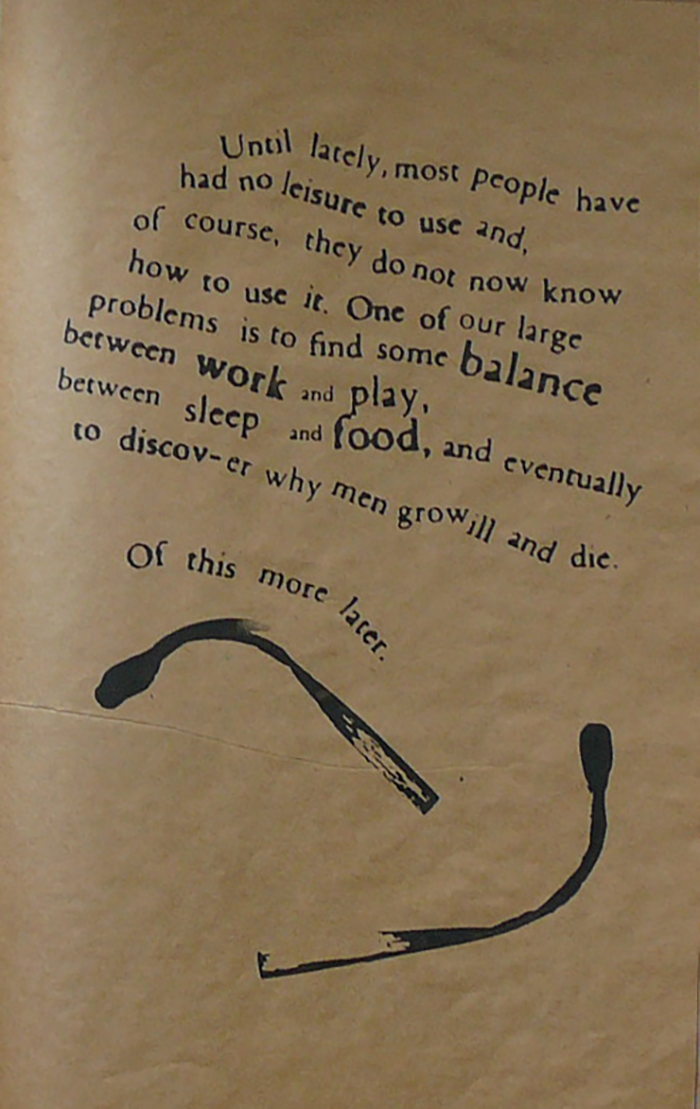 Until lately, most people have
had no leisure to use and,
of course, they do not now know
how to use it. One of our large
problems is to find some balance
between work and play,
between sleep and food, and eventually
to discov-er why men grow ill and die.
Of this more later.